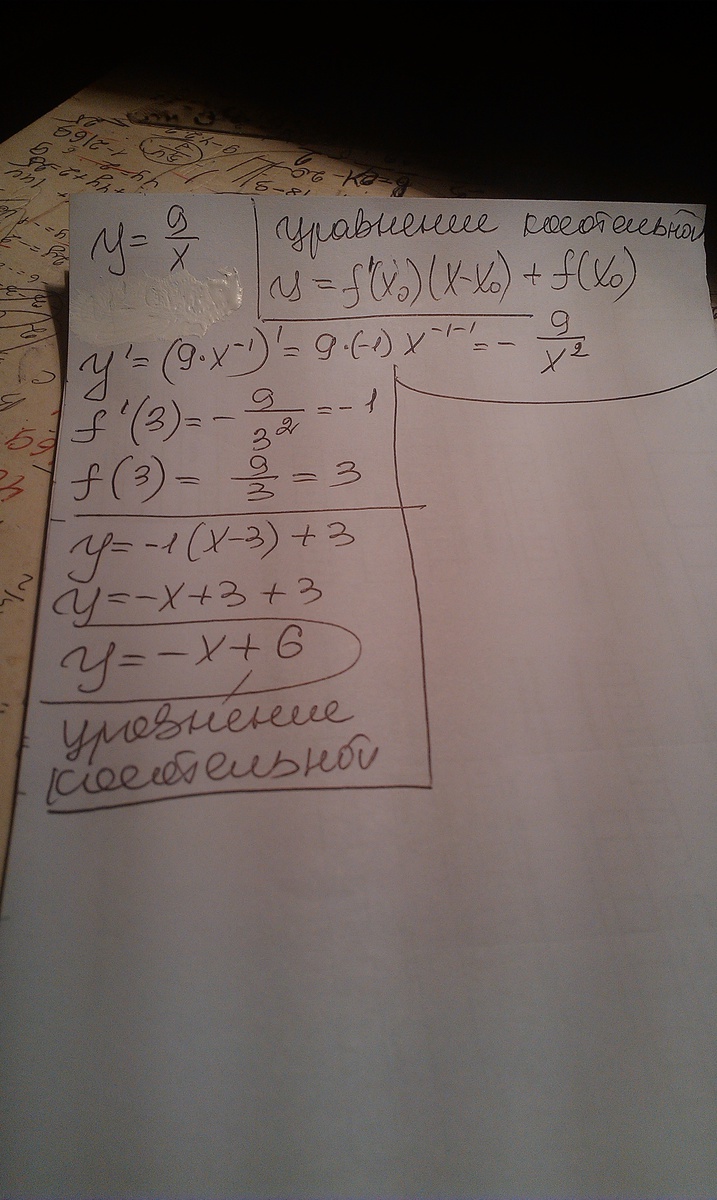 y = 9/x
уравнение касательной
y = f'(x₀)(x-x₀) + f(x₀)
y' = (9·x⁻¹)' = 9·(-1) x⁻¹⁻¹ = - 9/x²
f'(3) = - 9/3² = -1
f(3) = 9/3 = 3
y = -1(x-3) + 3
y = -x + 3 + 3
y = -x + 6
уравнение
касательной